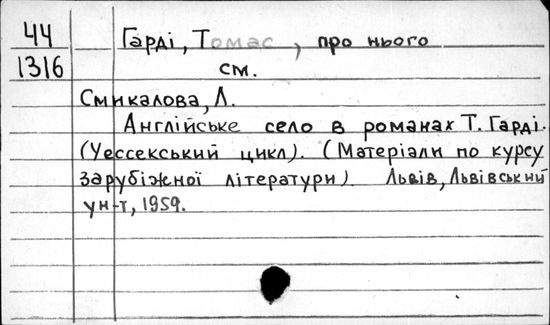 44
1316
Гарді, Томас, про нього
см.
Смикалова, Л.
Англійське село в романах Т. Гарді.
(Уессекський цикл). (Матеріали по курсу
зарубіжної літератури). Львів, Львівський
ун-т, 1959.